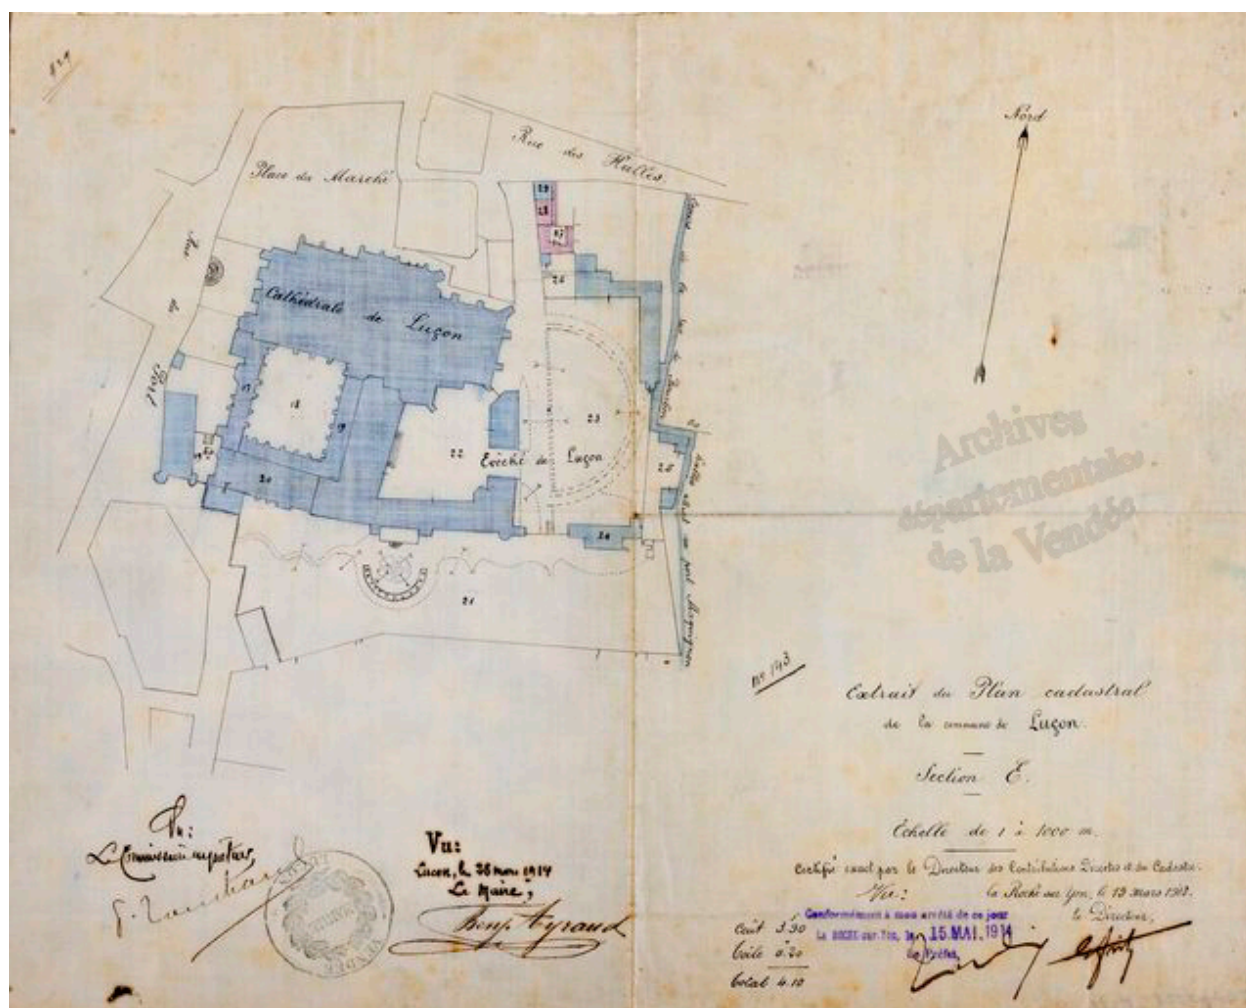 829
Nord
Rue des Halles
Place du Marché
29
28
27
26
Rue
de
la
Port
Cathédrale de Luçon
17
18
19
20
22
23
Evêché de Luçon
25
24
21
Archives
départementales
de la Vendée
No 143
Extrait du Plan cadastral
de la commune de Luçon.
Section E.
Echelle de 1 à 1000 m.
Certifié exact par le Directeur des Contributions Directes et du Cadastre.
Vu:
la Roche sur Yon, le 13 mars 1912.
le Directeur,
Conformément à mon arrêté de ce jour
La ROCHE-sur-Yon, le 15 MAI 1914
Le Préfet,
Coût 3.90
Toile 0.20
Total 4.10
Vu:
Le Commissaire enquêteur,
Vu:
Luçon, le 28 mars 1914
Le Maire,
VENDÉE